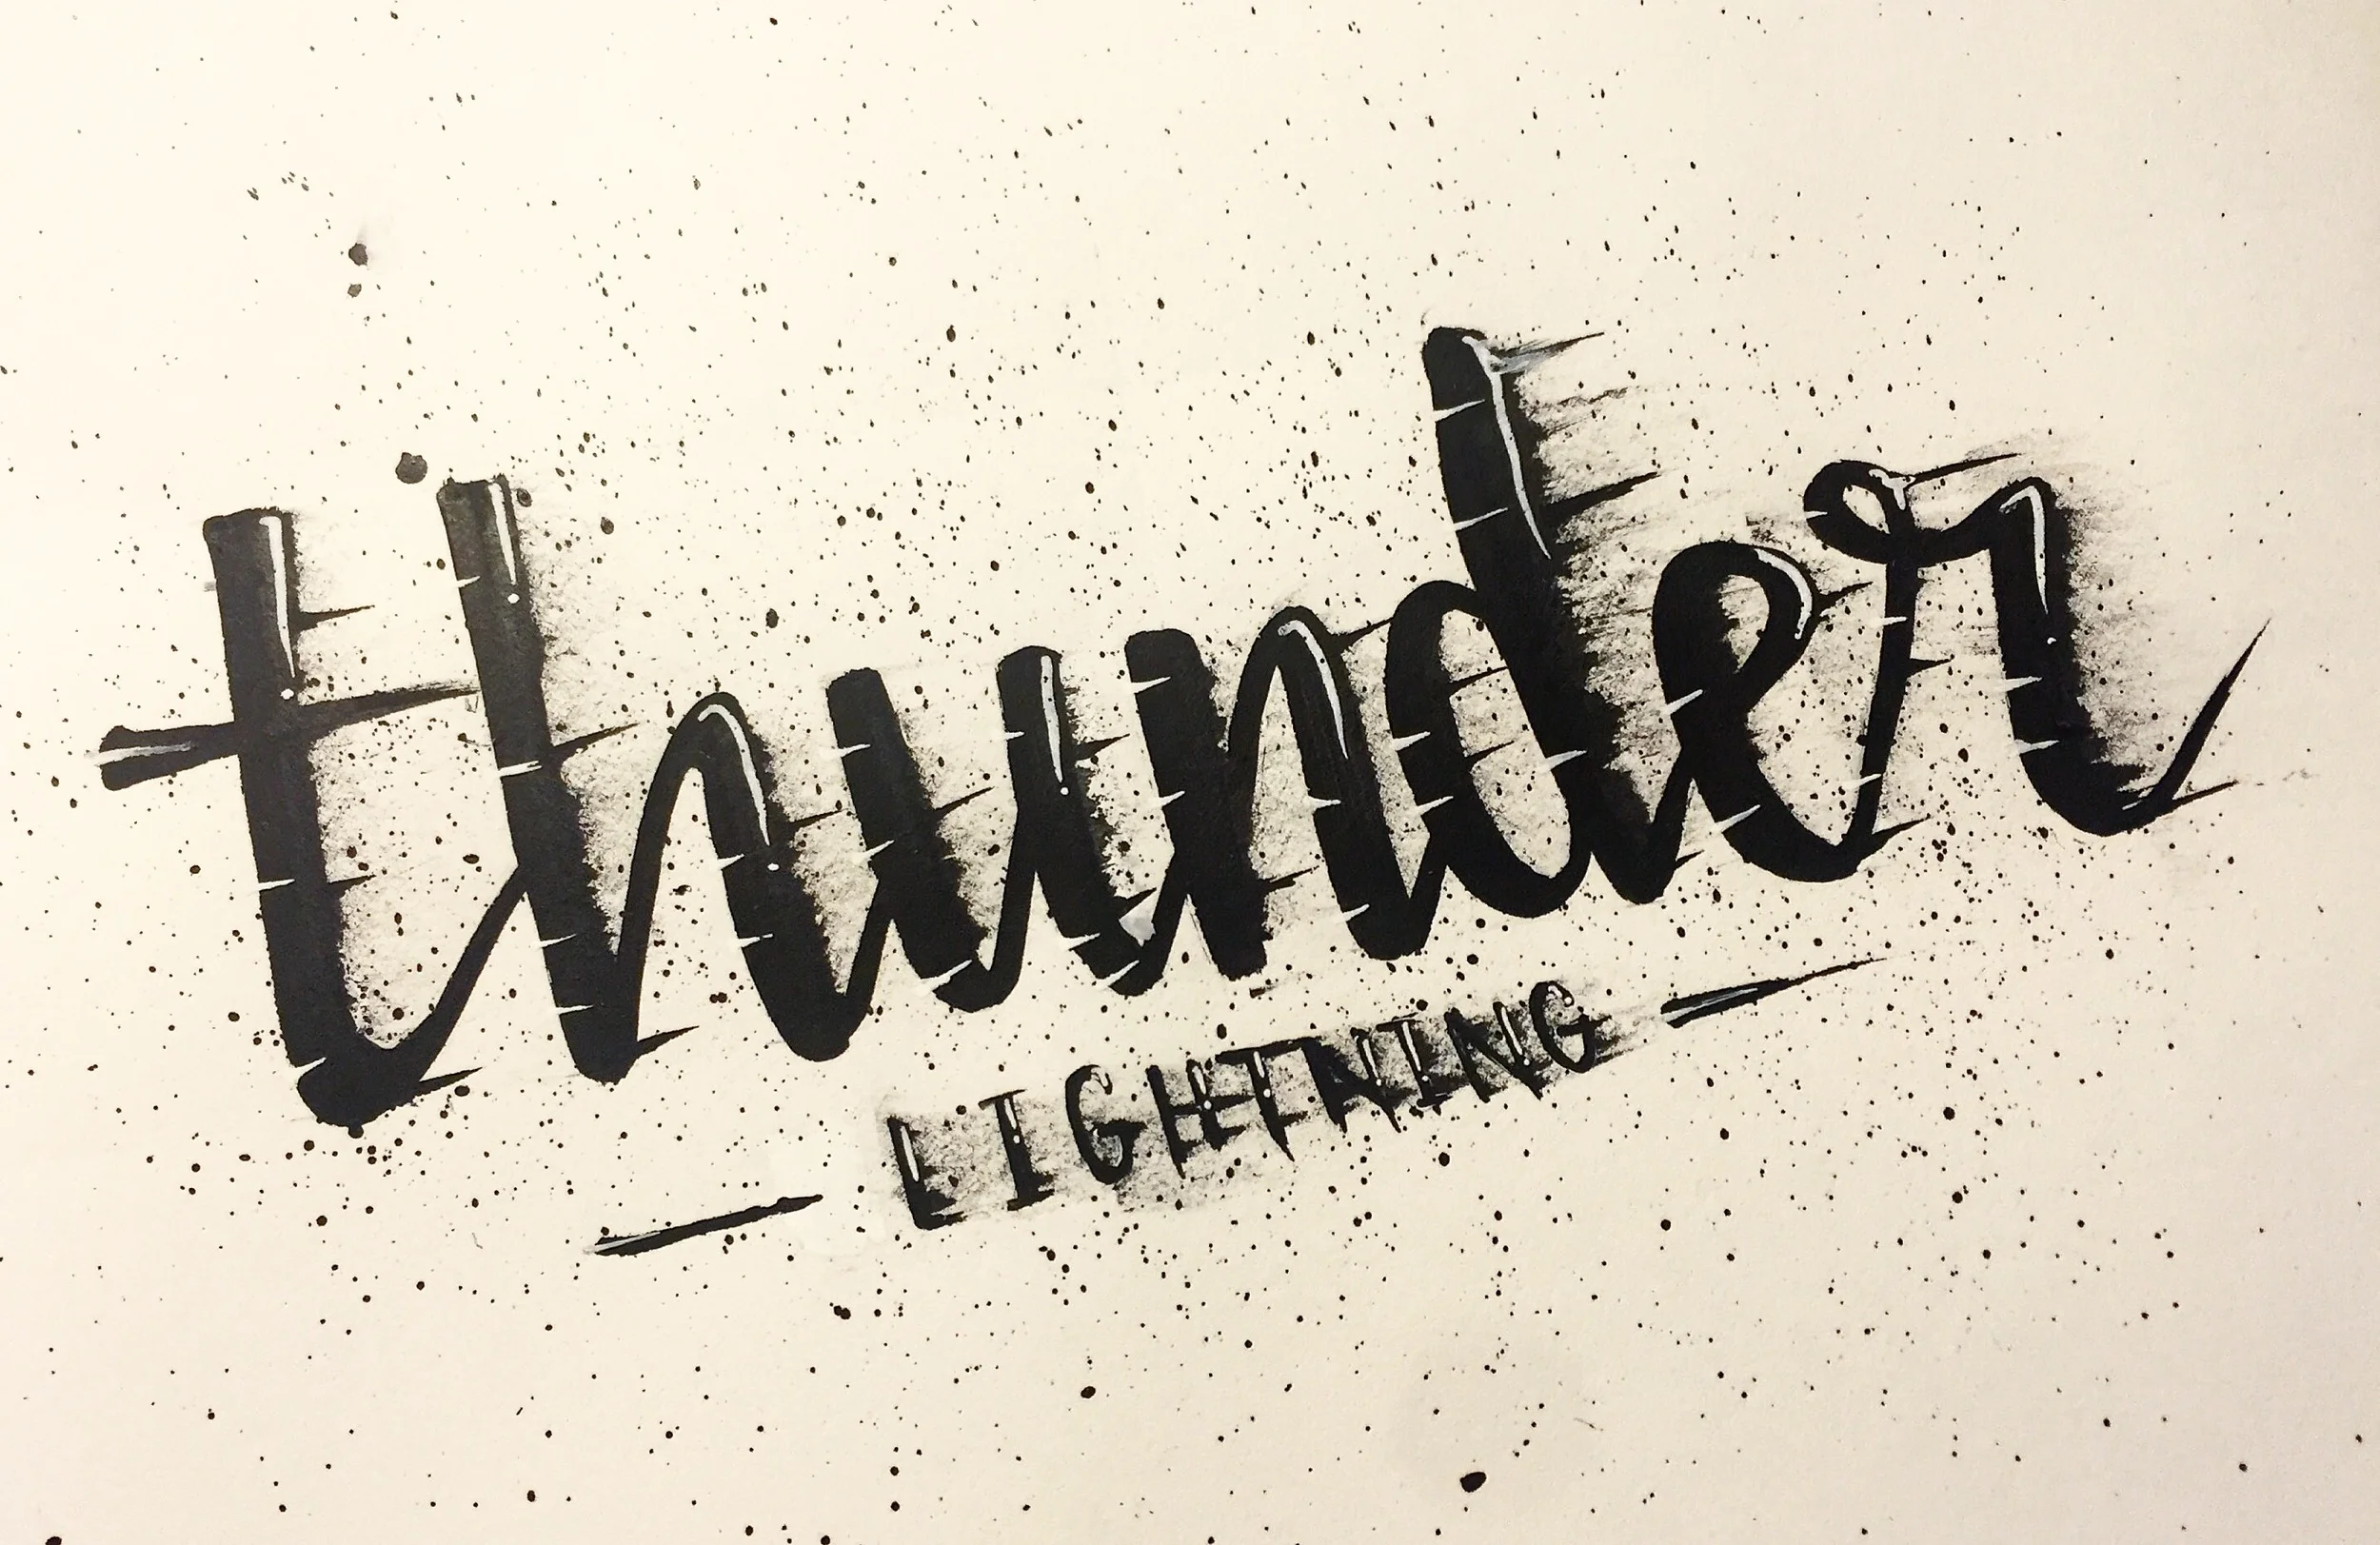 thunder
LIGHTNING